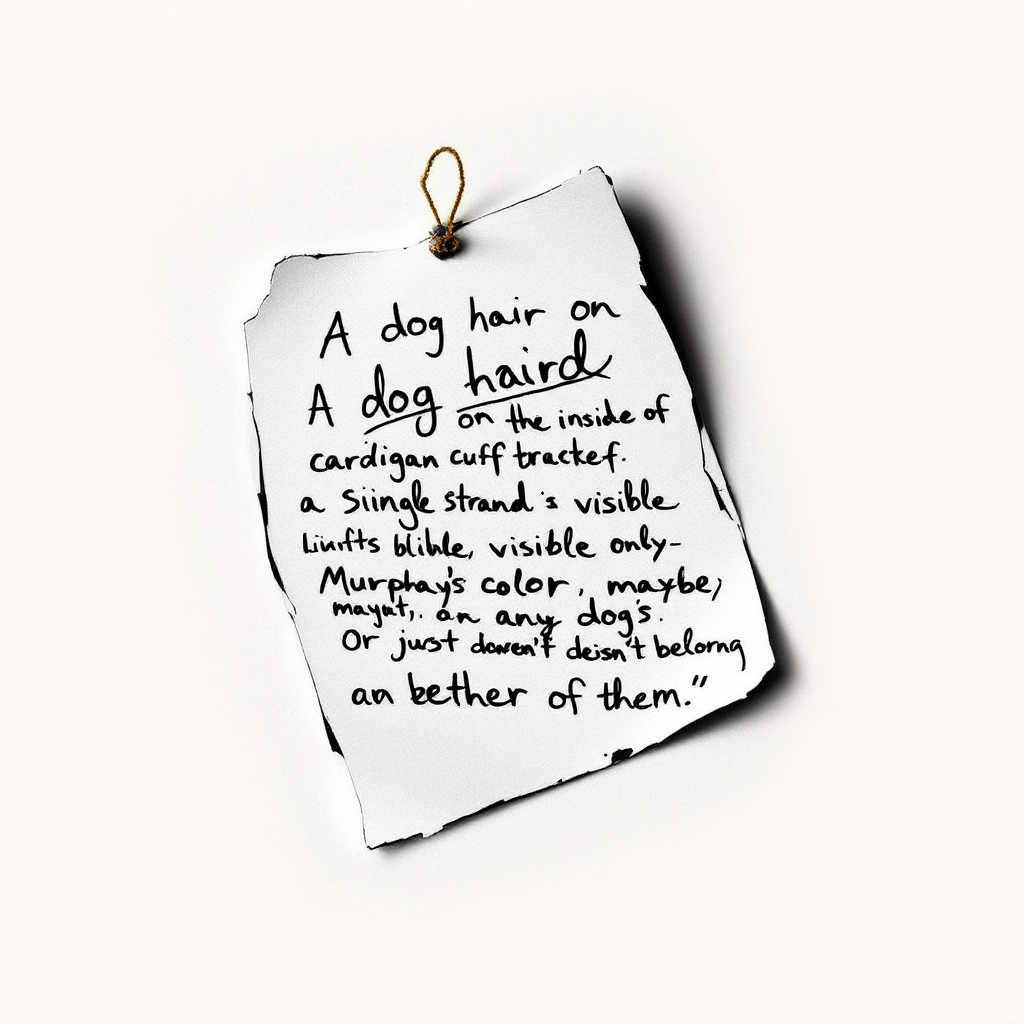 A dog hair on
A dog haird
on the inside of
cardigan cuff tracket.
a Siingle strand's visible
Liurfts blihle, visible only-
Murphay's color, maybe,
mayut,. an any dog's.
Or just doven't deisn't belorng
an bether of them."